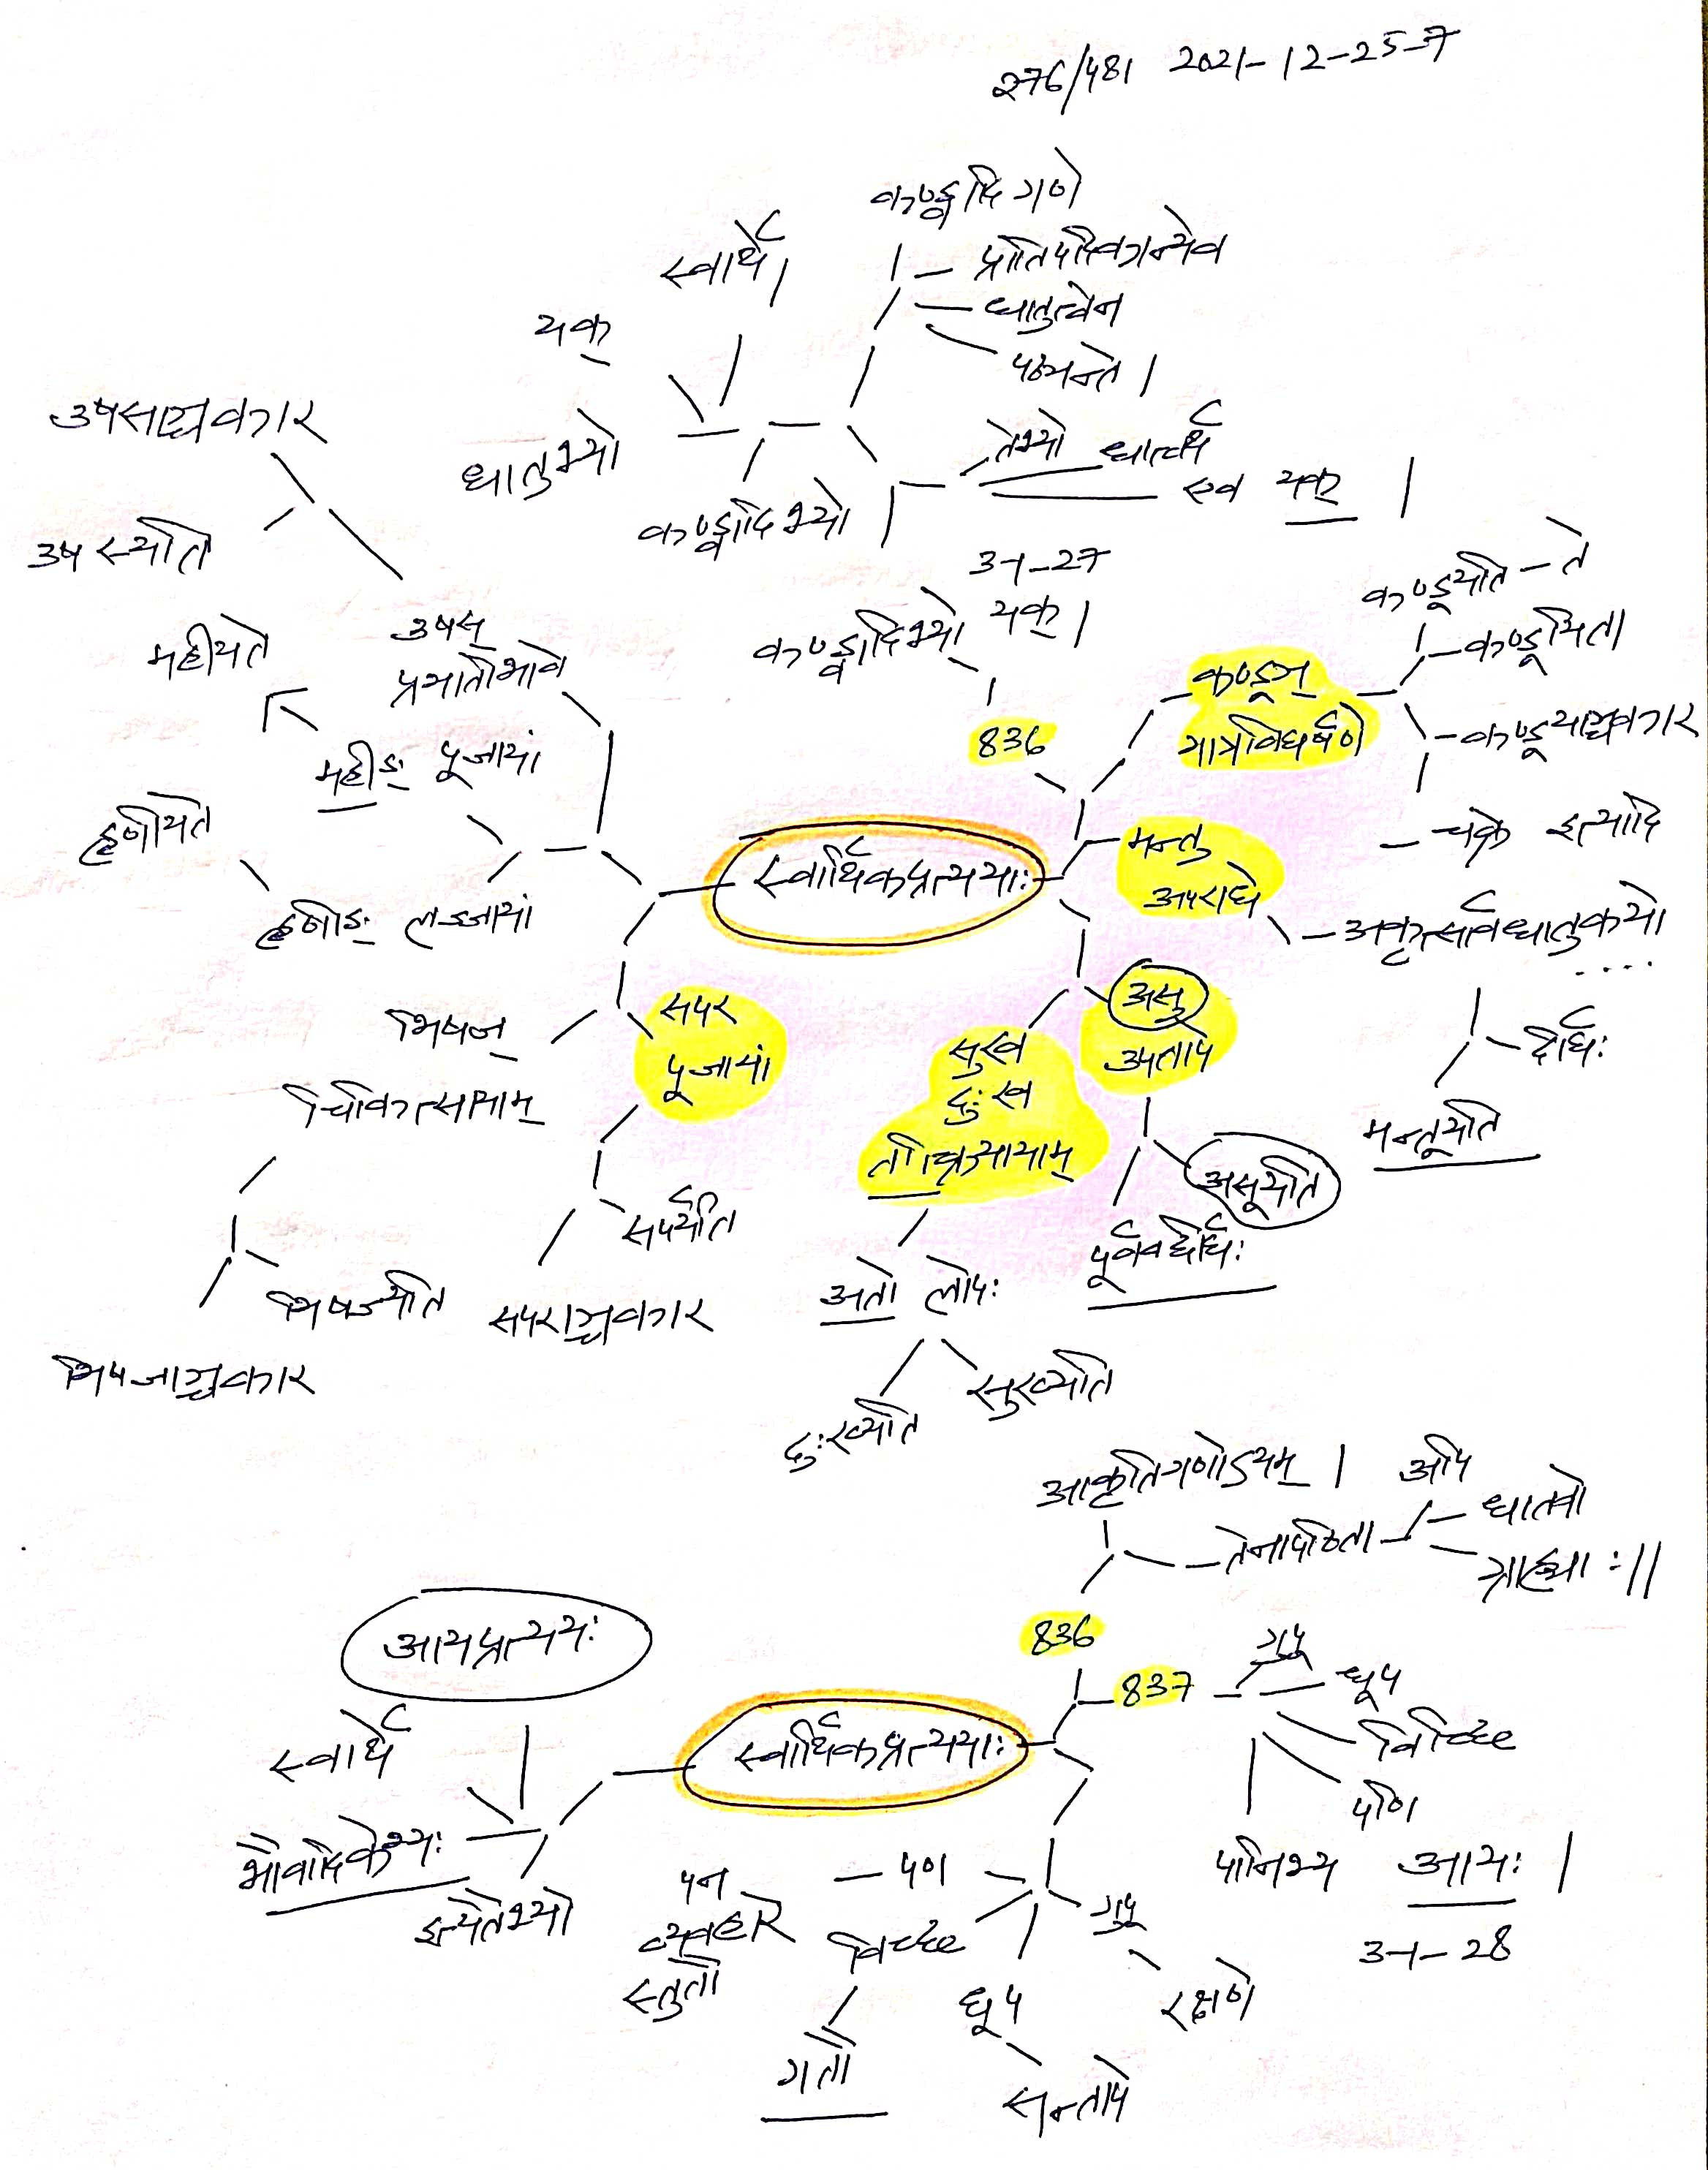 276/481 2021-12-25-7
कण्ड्वादि गणे
प्रातिपदिकान्येव
धातुत्वेन
पठ्यन्ते ।
तेभ्यो धात्वर्थे
एव यक् ।
स्वार्थे
यक्
धातुभ्यो
कण्ड्वादिभ्यो
3-1-27
कण्ड्वादिभ्यो यक् ।
836
उषसाञ्चकार
उषस्यति
उषस्
प्रभातीभावे
महीयते
महीङ् पूजायां
हृणीयते
हृणीङ् लज्जायां
स्वार्थिकप्रत्ययाः
कण्डूञ्
गात्रविघर्षणे
कण्डूयति - ते
कण्डूयिता
कण्डूयाञ्चकार
- चक्रे इत्यादि
मन्तु
अपराधे
अकृत्सार्वधातुकयो
....
दीर्घः
मन्तूयति
असु
उपतापे
असूयति
पूर्ववद्दीर्घः
सुख
दुःख
तत्क्रियायाम्
अतो लोपः
सुख्यति
दुःख्यति
सपर
पूजायां
सपर्यति
सपराञ्चकार
भिषज्
चिकित्सायाम्
भिषज्यति
भिषजाञ्चकार
आकृतिगणोऽयम् । अपि
तेनापठिता
धातवो
ग्राह्याः ॥
836
837
गुपू
धूप
विच्छि
पणि
पनिभ्य आयः ।
3-1-28
स्वार्थिकप्रत्ययाः
आयप्रत्ययः
स्वार्थे
भौवादिकेभ्यः
इत्येतेभ्यो
पन
व्यवहारे
स्तुतौ
- पण
विच्छ
गतौ
धूप
सन्तापे
गुपू
रक्षणे